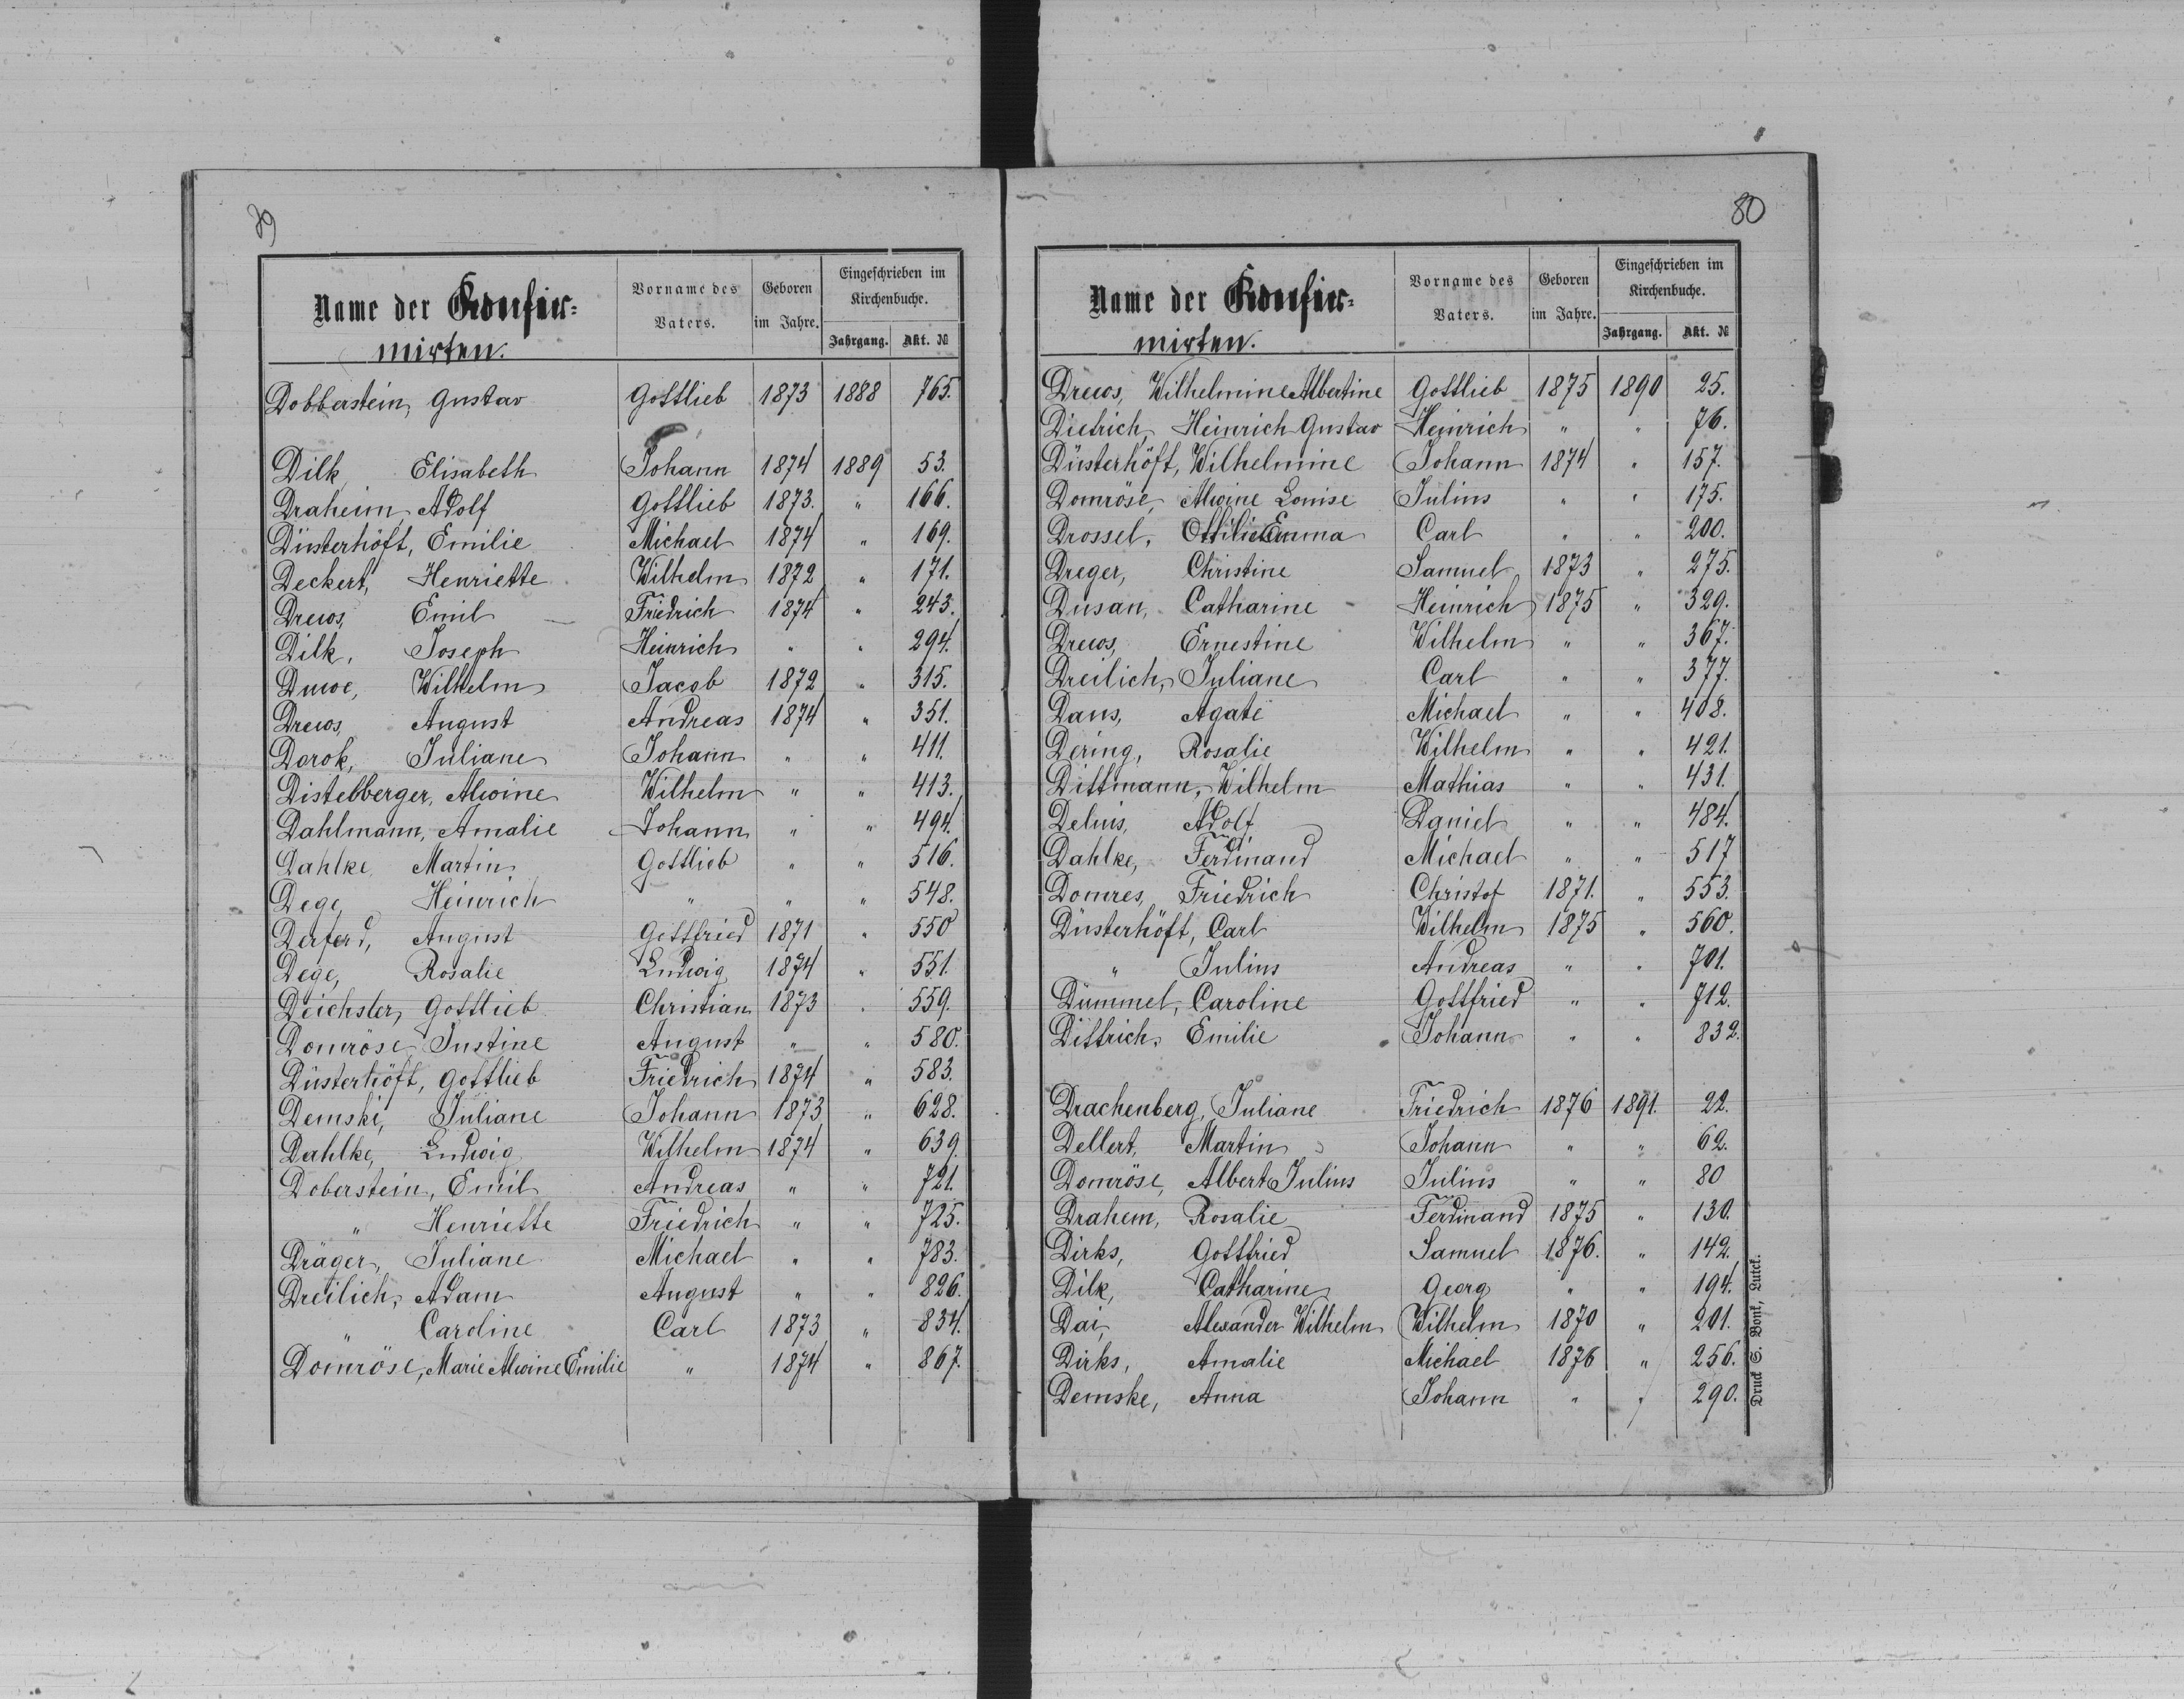 79
Name der Konfir-
mirten.
Vorname des
Vaters.
Geboren
im Jahre.
Eingeschrieben im
Kirchenbuche.
Jahrgang. Akt. №
Dobberstein, Gustav Gottlieb 1873 1888 765.
Dilk, Elisabeth Johann 1874 1889 53.
Draheim, Adolf Gottlieb 1873. " 166.
Düsterhöft, Emilie Michael 1874 " 169.
Deckert, Henriette Wilhelm 1872 " 171.
Drews, Emil Friedrich 1874 " 243.
Dilk, Joseph Heinrich " " 294.
Duwe, Wilhelm Jacob 1872 " 315.
Drews, August Andreas 1874 " 351.
Dorok, Juliane Johann " " 411.
Distelberger, Alwine Wilhelm " " 413.
Dahlmann, Amalie Johann " " 494.
Dahlke, Martin Gottlieb " " 516.
Dege, Heinrich " " " 548.
Derferd, August Gottfried 1871 " 550
Dege, Rosalie Ludwig 1874 " 551.
Deichsler, Gottlieb Christian 1873 " 559.
Domröse, Justine August " " 580.
Düsterhöft, Gottlieb Friedrich 1874 " 583.
Demski, Juliane Johann 1873 " 628.
Dahlke, Ludwig Wilhelm 1874 " 639.
Doberstein, Emil Andreas " " 721.
" Henriette Friedrich " " 725.
Dräger, Juliane Michael " " 783.
Dreilich, Adam August " " 826.
" Caroline Carl 1873 " 834.
Domröse, Marie Alwine Emilie " 1874 " 867.
80
Name der Konfir-
mirten.
Vorname des
Vaters.
Geboren
im Jahre.
Eingeschrieben im
Kirchenbuche.
Jahrgang. Akt. №
Drews, Wilhelmine Albertine Gottlieb 1875 1890 25.
Dietrich, Heinrich Gustav Heinrich " " 76.
Düsterhöft, Wilhelmine Johann 1874 " 157.
Domröse, Alwine Louise Julius " " 175.
Drossel, Ottilie Emma Carl " " 200.
Dreger, Christine Samuel 1873 " 275.
Dusan, Catharine Heinrich 1875 " 329.
Drews, Ernestine Wilhelm " " 367.
Dreilich, Juliane Carl " " 377.
Daus, Agate Michael " " 408.
Dering, Rosalie Wilhelm " " 421.
Dittmann, Wilhelm Mathias " " 431.
Delius, Adolf Daniel " " 484.
Dahlke, Ferdinand Michael " " 517
Domres, Friedrich Christof 1871. " 553.
Düsterhöft, Carl Wilhelm 1875 " 560.
" Julius Andreas " " 701.
Dümmel, Caroline Gottfried " " 712.
Dittrich, Emilie Johann " " 832.
Drachenberg, Juliane Friedrich 1876 1891. 22.
Dellert, Martin Johann " " 62.
Domröse, Albert Julius Julius " " 80
Drahem, Rosalie Ferdinand 1875 " 130.
Dirks, Gottfried Samuel 1876. " 142.
Dilk, Catharine Georg " " 194.
Dai, Alexander Wilhelm Wilhelm 1870 " 201.
Dirks, Amalie Michael 1876 " 256.
Demske, Anna Johann " " 290.
Druck S. Bont, Lutck.